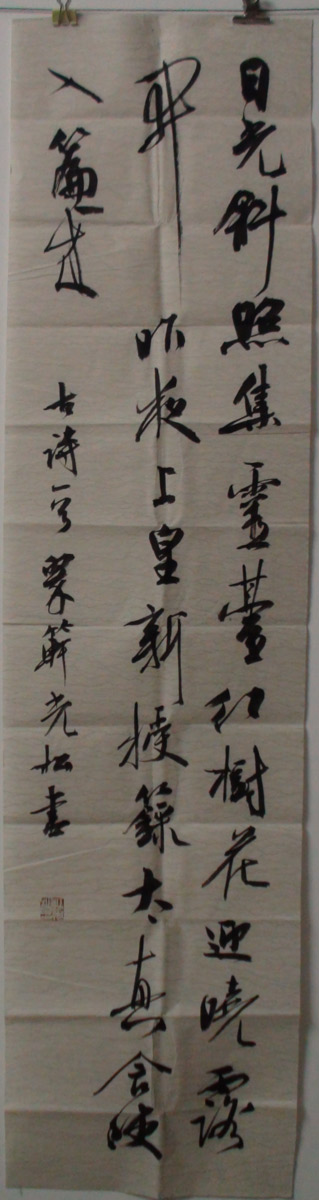 日光斜照集靈臺紅樹花迎曉露
開昨夜上皇新授籙太真含咲
入簾來
古詩一首光松書